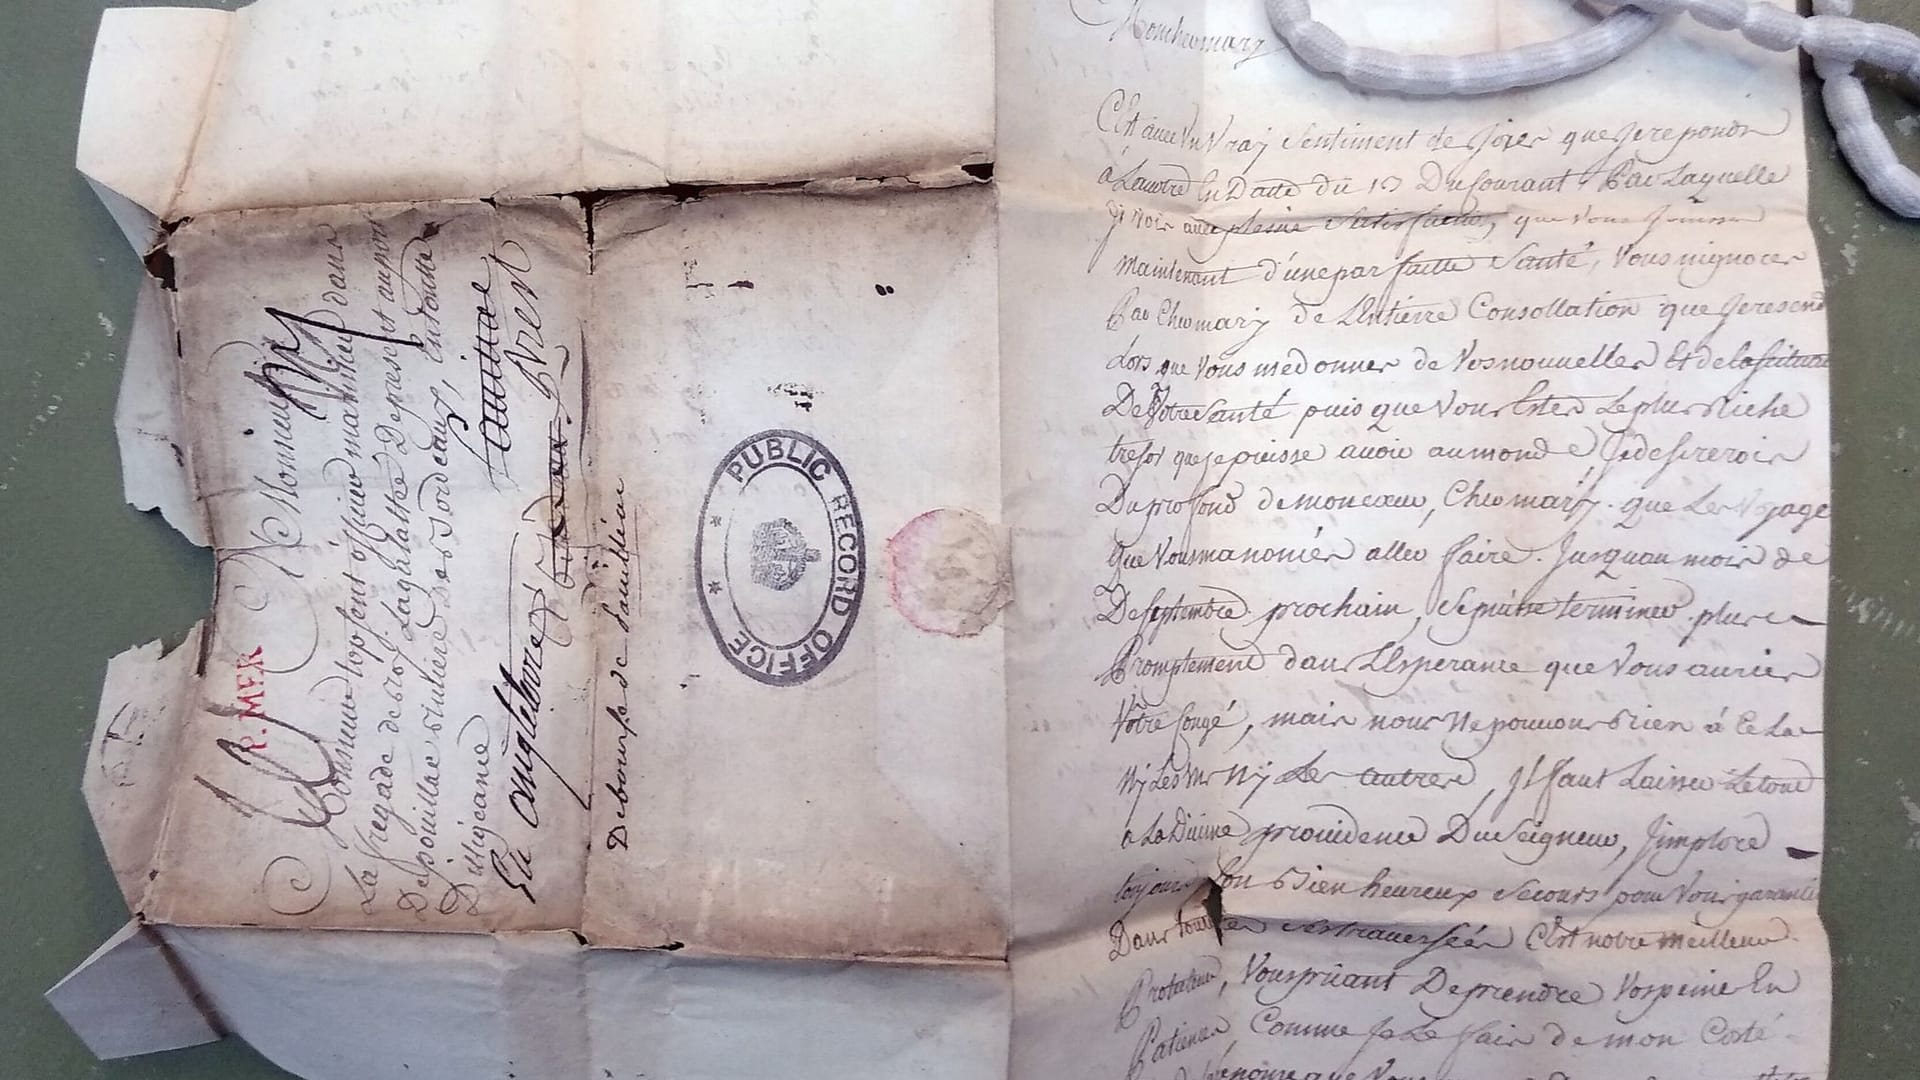 Mon cher mary
C'est avec Un Vray Sentiment de joÿer que Je reponds
á La votre En Datte du 13 Du Courant, Par Laquelle
Je vois avec pleine Satisfaction, que vous Jouissez
maintenant d'une par faitte Santé, Vous nignocer
Par Cher mary de L'Entierre Consollation que Je resend
Lors que Vous me donner de Vos nouvelles Et de la scituation
De Votre Santé puis que Vous Estes Le plus Riche
tresor que je puisse avoir au monde Je desirerois
Du profond de mon cœur, Cher mary que Les Voyage
que Vous manoncés aller faire Jusquau mois de
De Septembre prochain, Se puisse terminer plus
Promptement dans L'Esperance que Vous auriés
Votre Congé, mais nous Ne pouvons Rien á Cela
Nÿ Les uns Nÿ Les Autres, Il faut Laisser Le tout
a La Divine providence Du Seigneur, J'implore
toujours Son Bien heureux Secours pour Vous garantir
Dans toutes Ses traversées C'Est notre meilleur
Protecteur, Vous priant De prendre Vos peine En
Patience, Comme Je Le fais de mon Costé
que Vous
Monsieur
Monsieur topsent officier marinier dans
La fregade du Roÿ Lagalathée De present au port
De pouillac Riviere de Bordeaux, En toutte
Diligeance
En angleterre
Brest
Debourse de Paimbœuf
P. MER
PUBLIC RECORD OFFICE